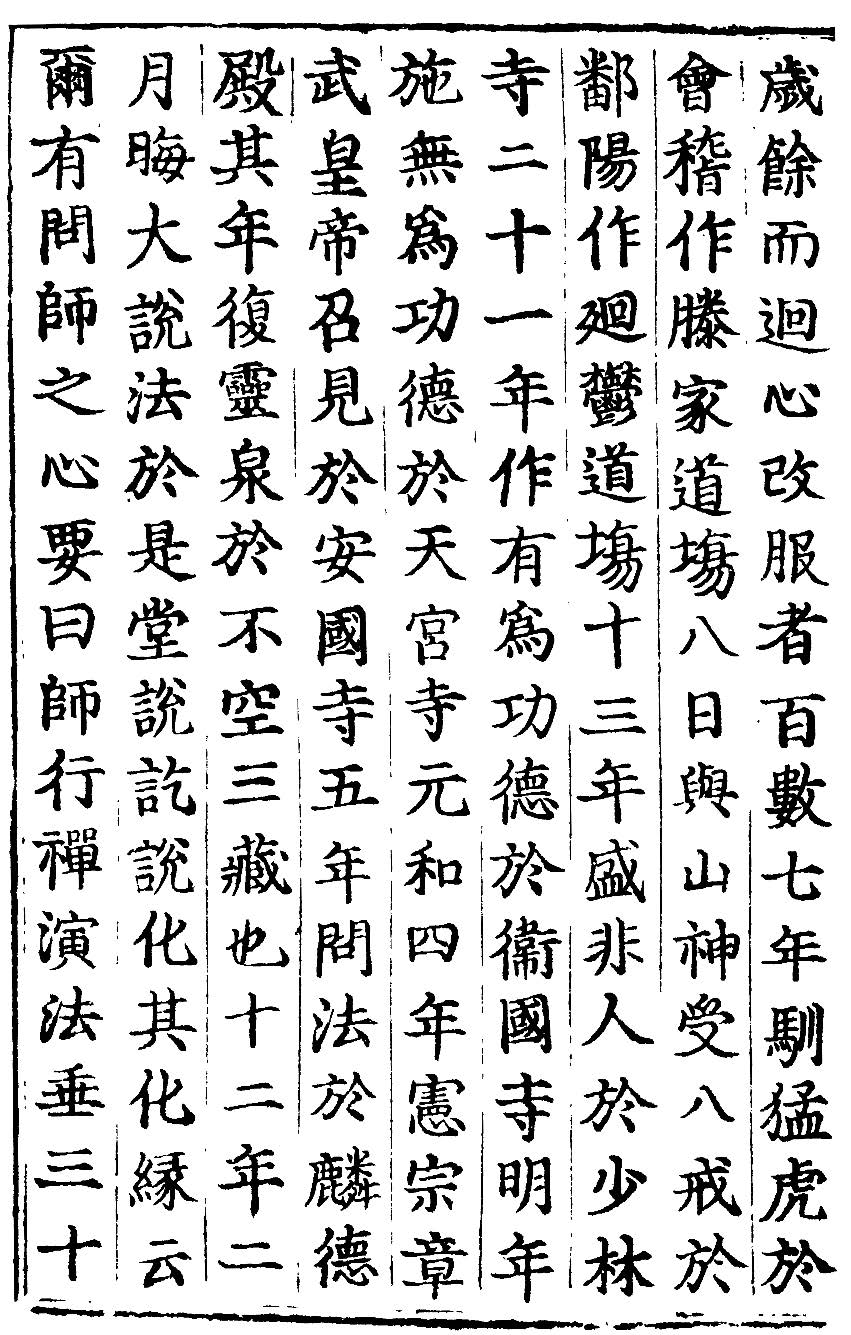 歲餘而迴心改服者百數七年馴猛虎於
會稽作滕家道塲八日與山神受八戒於
鄱陽作廻鬱道塲十三年感非人於少林
寺二十一年作有爲功德於衞國寺明年
施無爲功德於天宮寺元和四年憲宗章
武皇帝召見於安國寺五年問法於麟德
殿其年復靈泉於不空三藏也十二年二
月晦大說法於是堂說訖說化其化緣云
爾有問師之心要曰師行禪演法垂三十